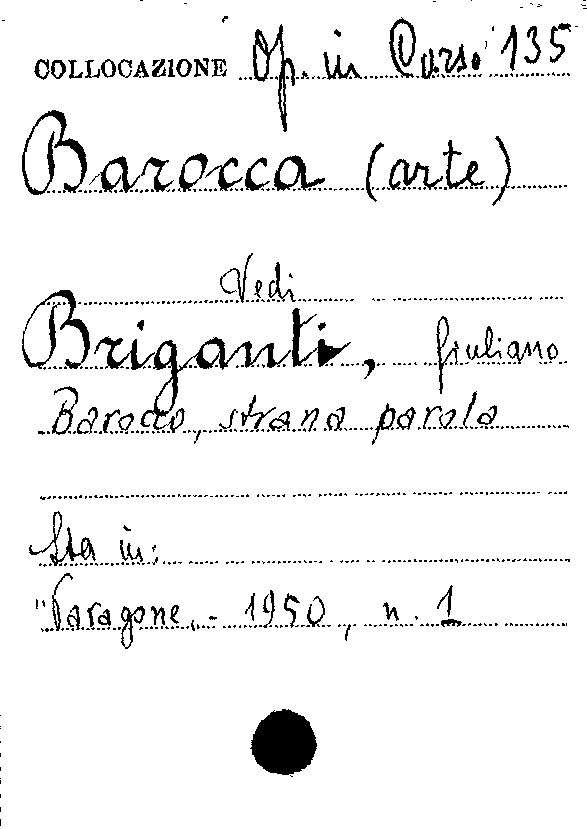 COLLOCAZIONE Op. in Corso 135
Barocca (arte)
Vedi
Briganti, Giuliano
Barocco, strana parola
Sta in:
"Paragone„ - 1950, n. 1